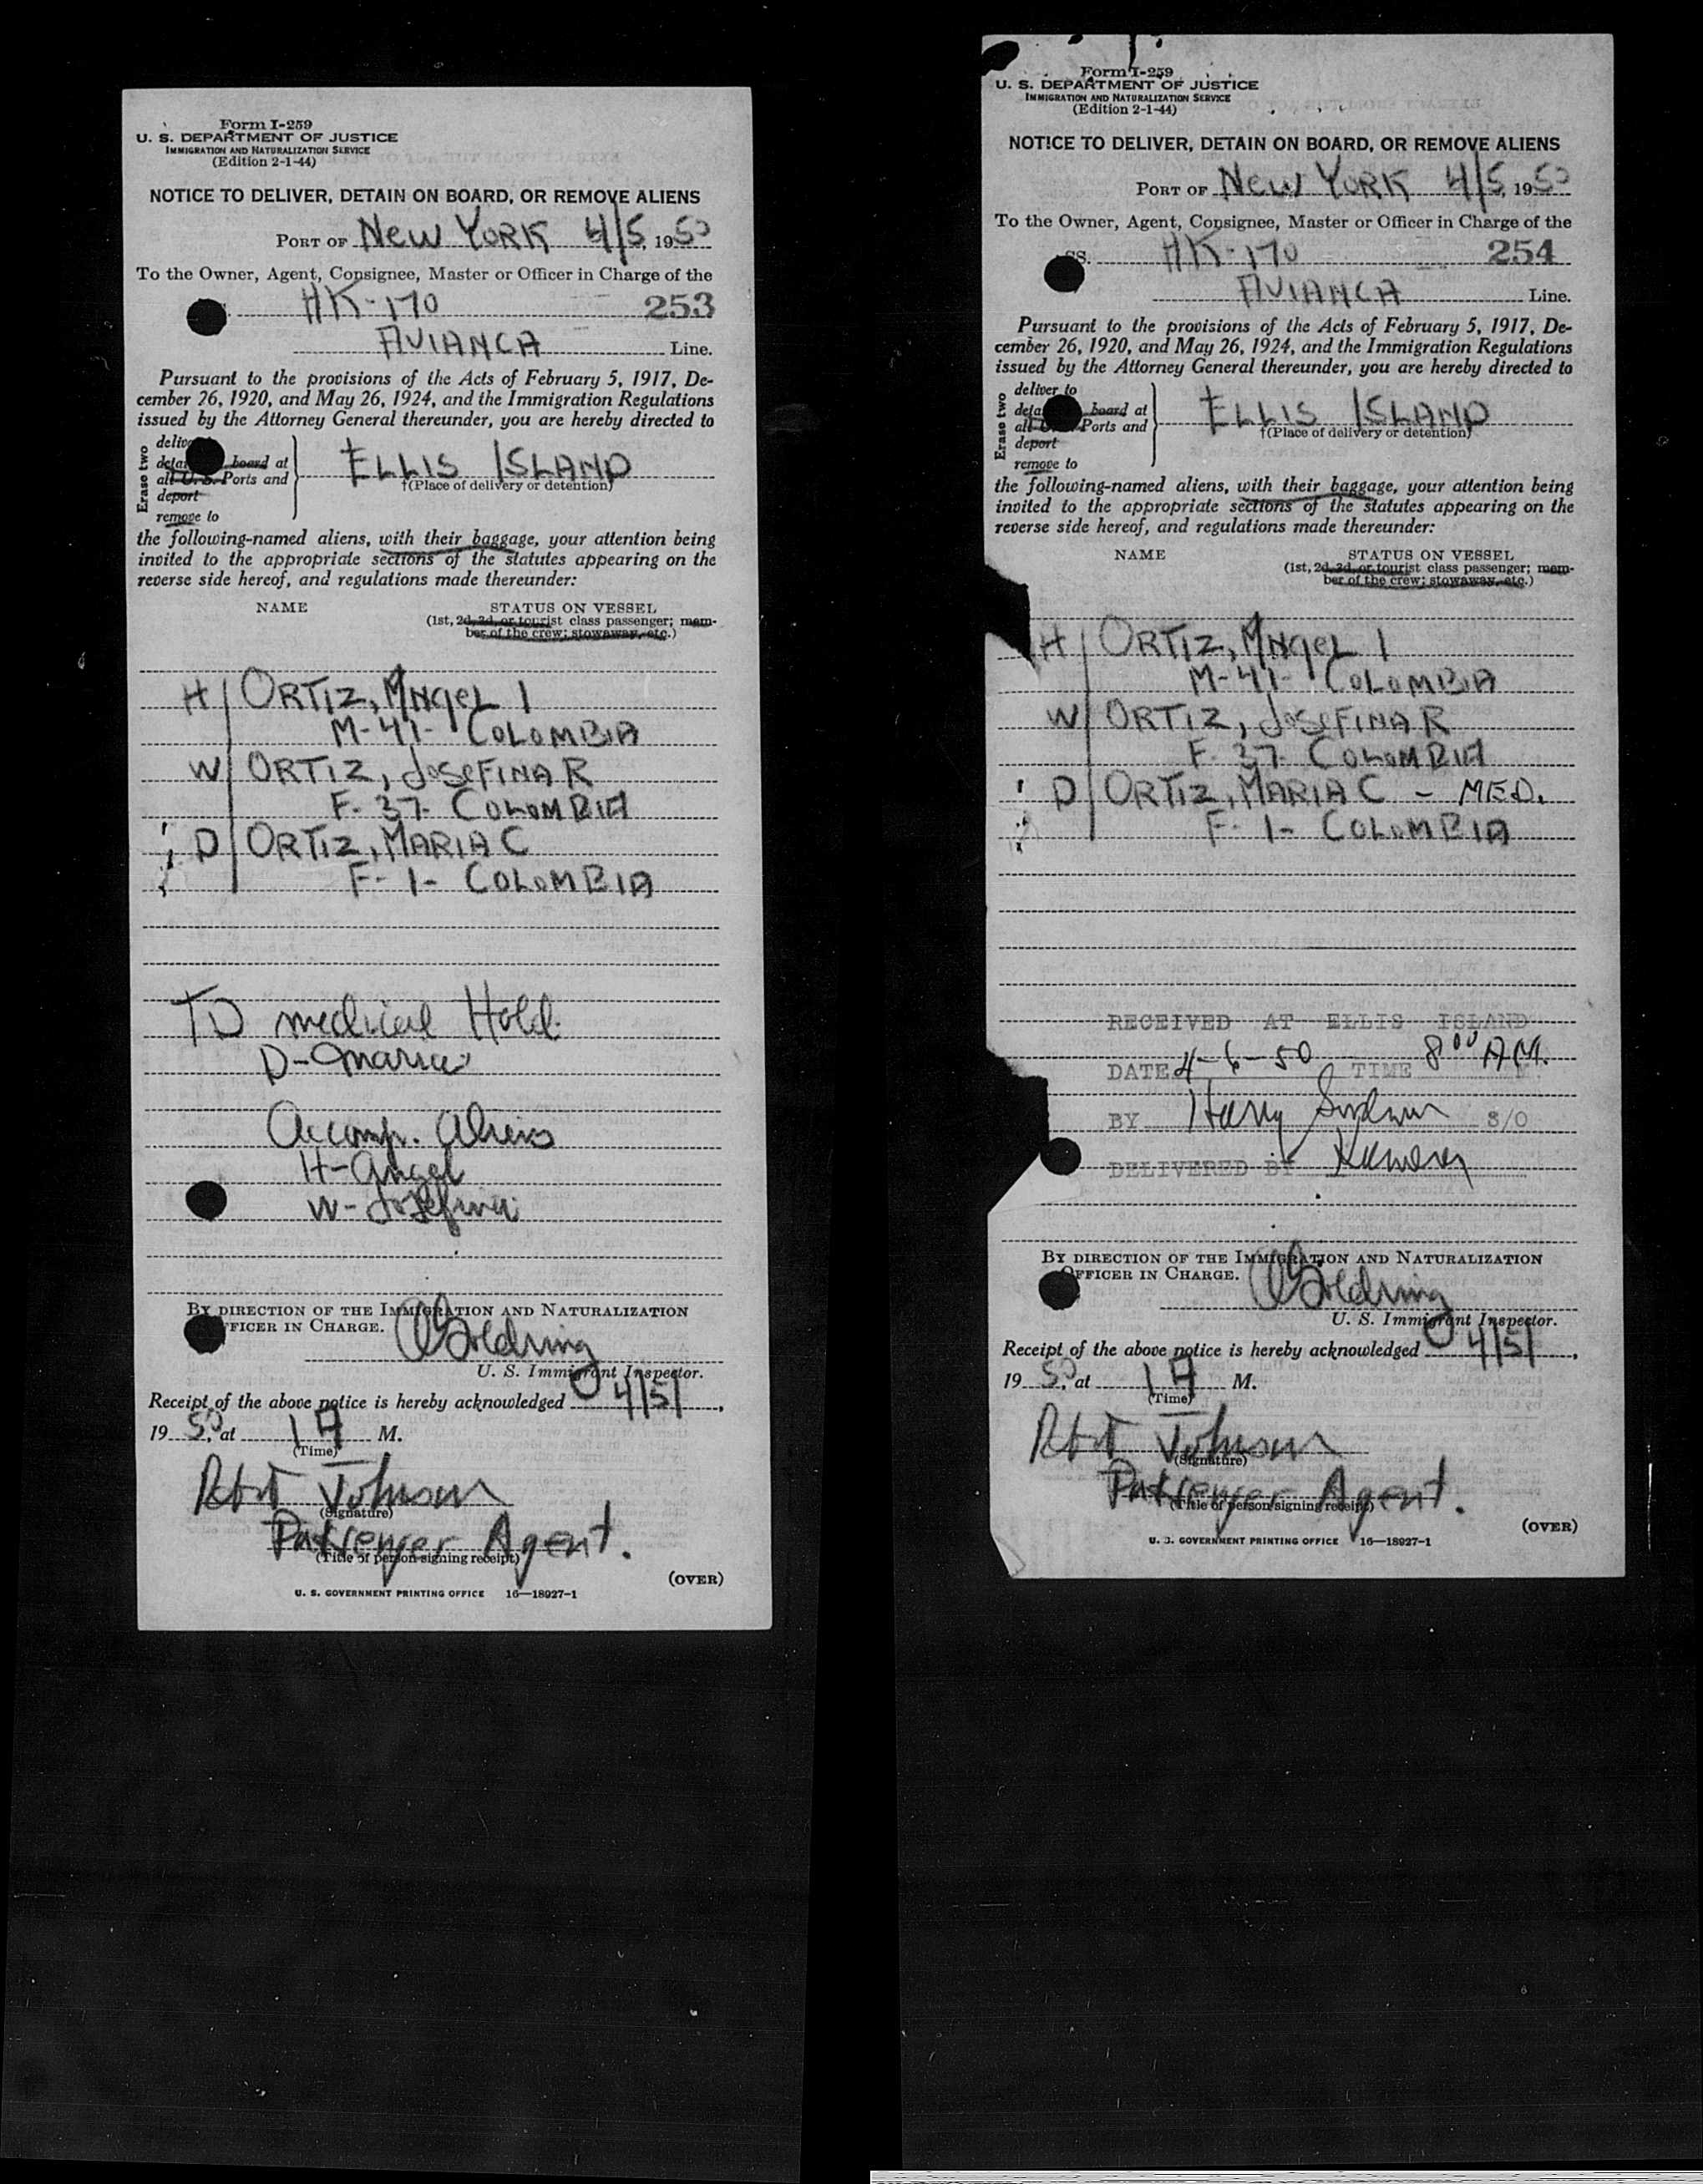 Form I-259
U. S. DEPARTMENT OF JUSTICE
IMMIGRATION AND NATURALIZATION SERVICE
(Edition 2-1-44)
NOTICE TO DELIVER, DETAIN ON BOARD, OR REMOVE ALIENS
PORT OF NEW YORK 4/5, 1950
To the Owner, Agent, Consignee, Master or Officer in Charge of the
HK-170 253
AVIANCA Line.
Pursuant to the provisions of the Acts of February 5, 1917, De-
cember 26, 1920, and May 26, 1924, and the Immigration Regulations
issued by the Attorney General thereunder, you are hereby directed to
Erase two
board at
all U. S. Ports and
deport
remove to
ELLIS ISLAND
†(Place of delivery or detention)
the following-named aliens, with their baggage, your attention being
invited to the appropriate sections of the statutes appearing on the
reverse side hereof, and regulations made thereunder:
NAME STATUS ON VESSEL
(1st, 2d, 3d, or tourist class passenger; mem-
ber of the crew; stowaway, etc.)
H ORTIZ, ANGEL I
M-41- COLOMBIA
W ORTIZ, JOSEFINA R
F-37- COLOMBIA
D ORTIZ, MARIA C
F-1- COLOMBIA
TD medical Hold
D-Maria
Accomp. Aliens
H-Angel
W-Josefina
BY DIRECTION OF THE IMMIGRATION AND NATURALIZATION
FFICER IN CHARGE.
Goldring
U. S. Immigrant Inspector.
Receipt of the above notice is hereby acknowledged 4/5/,
1950, at 1 A M.
(Time)
Robt Johnson
(Signature)
Passenger Agent.
(Title of person signing receipt)
(OVER)
U. S. GOVERNMENT PRINTING OFFICE 16—18927-1
Form I-259
U. S. DEPARTMENT OF JUSTICE
IMMIGRATION AND NATURALIZATION SERVICE
(Edition 2-1-44)
NOTICE TO DELIVER, DETAIN ON BOARD, OR REMOVE ALIENS
PORT OF NEW YORK 4/5, 1950
To the Owner, Agent, Consignee, Master or Officer in Charge of the
SS. HK-170 254
AVIANCA Line.
Pursuant to the provisions of the Acts of February 5, 1917, De-
cember 26, 1920, and May 26, 1924, and the Immigration Regulations
issued by the Attorney General thereunder, you are hereby directed to
Erase two
deliver to
board at
Ports and
deport
remove to
ELLIS ISLAND
†(Place of delivery or detention)
the following-named aliens, with their baggage, your attention being
invited to the appropriate sections of the statutes appearing on the
reverse side hereof, and regulations made thereunder:
NAME STATUS ON VESSEL
(1st, 2d, 3d, or tourist class passenger; mem-
ber of the crew; stowaway, etc.)
H ORTIZ, ANGEL I
M-41- COLOMBIA
W ORTIZ, JOSEFINA R
F-37- COLOMBIA
D ORTIZ, MARIA C - MED.
F-1- COLOMBIA
RECEIVED AT ELLIS ISLAND
DATE 4-6-50 TIME 8 00 A.M.
BY Harry S/O
DELIVERED BY
BY DIRECTION OF THE IMMIGRATION AND NATURALIZATION
OFFICER IN CHARGE.
Goldring
U. S. Immigrant Inspector.
Receipt of the above notice is hereby acknowledged 4/5/,
1950, at 1 A M.
(Time)
Robt Johnson
(Signature)
Passenger Agent.
(Title of person signing receipt)
(OVER)
U. S. GOVERNMENT PRINTING OFFICE 16—18927-1